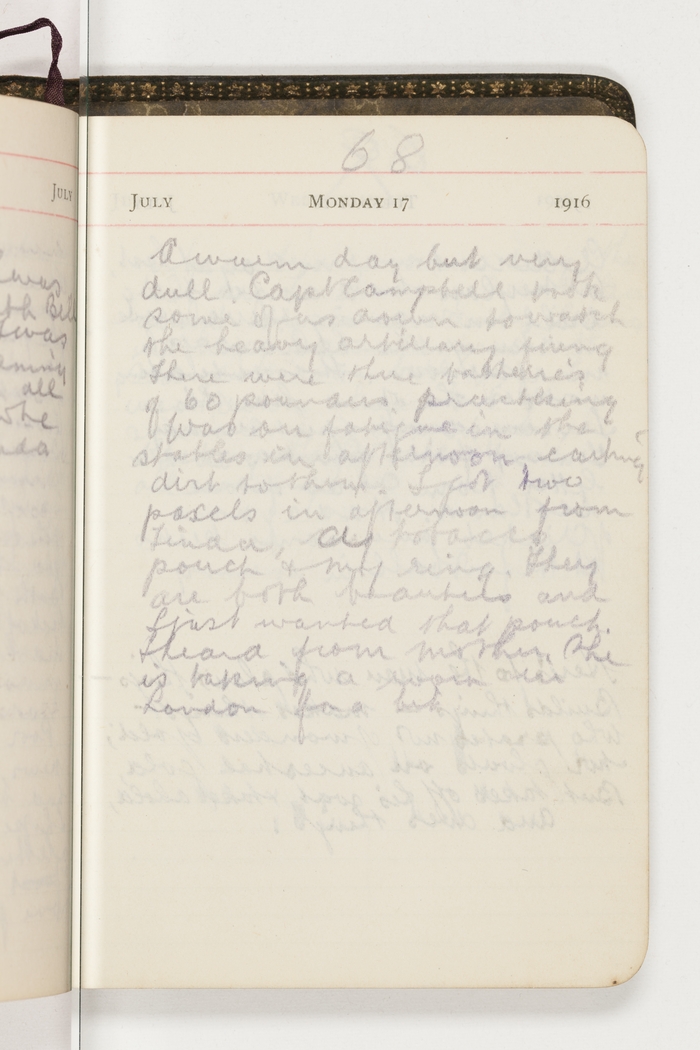 July
was
th Bill
I was
all
68
July Monday 17 1916
A warm day but very
dull. Capt Campbell took
some of us down to watch
the heavy artillary firing
There were three batteries
of 60 pounders practising
I was on fatigue in the
stables in afternoon carting
dirt to them. I got two
paxels in afternoon from
Linda, a tobacco
pouch & my ring. They
are both beauties and
I just wanted that pouch.
I heard from mother. She
is taking a room in
London for a bit